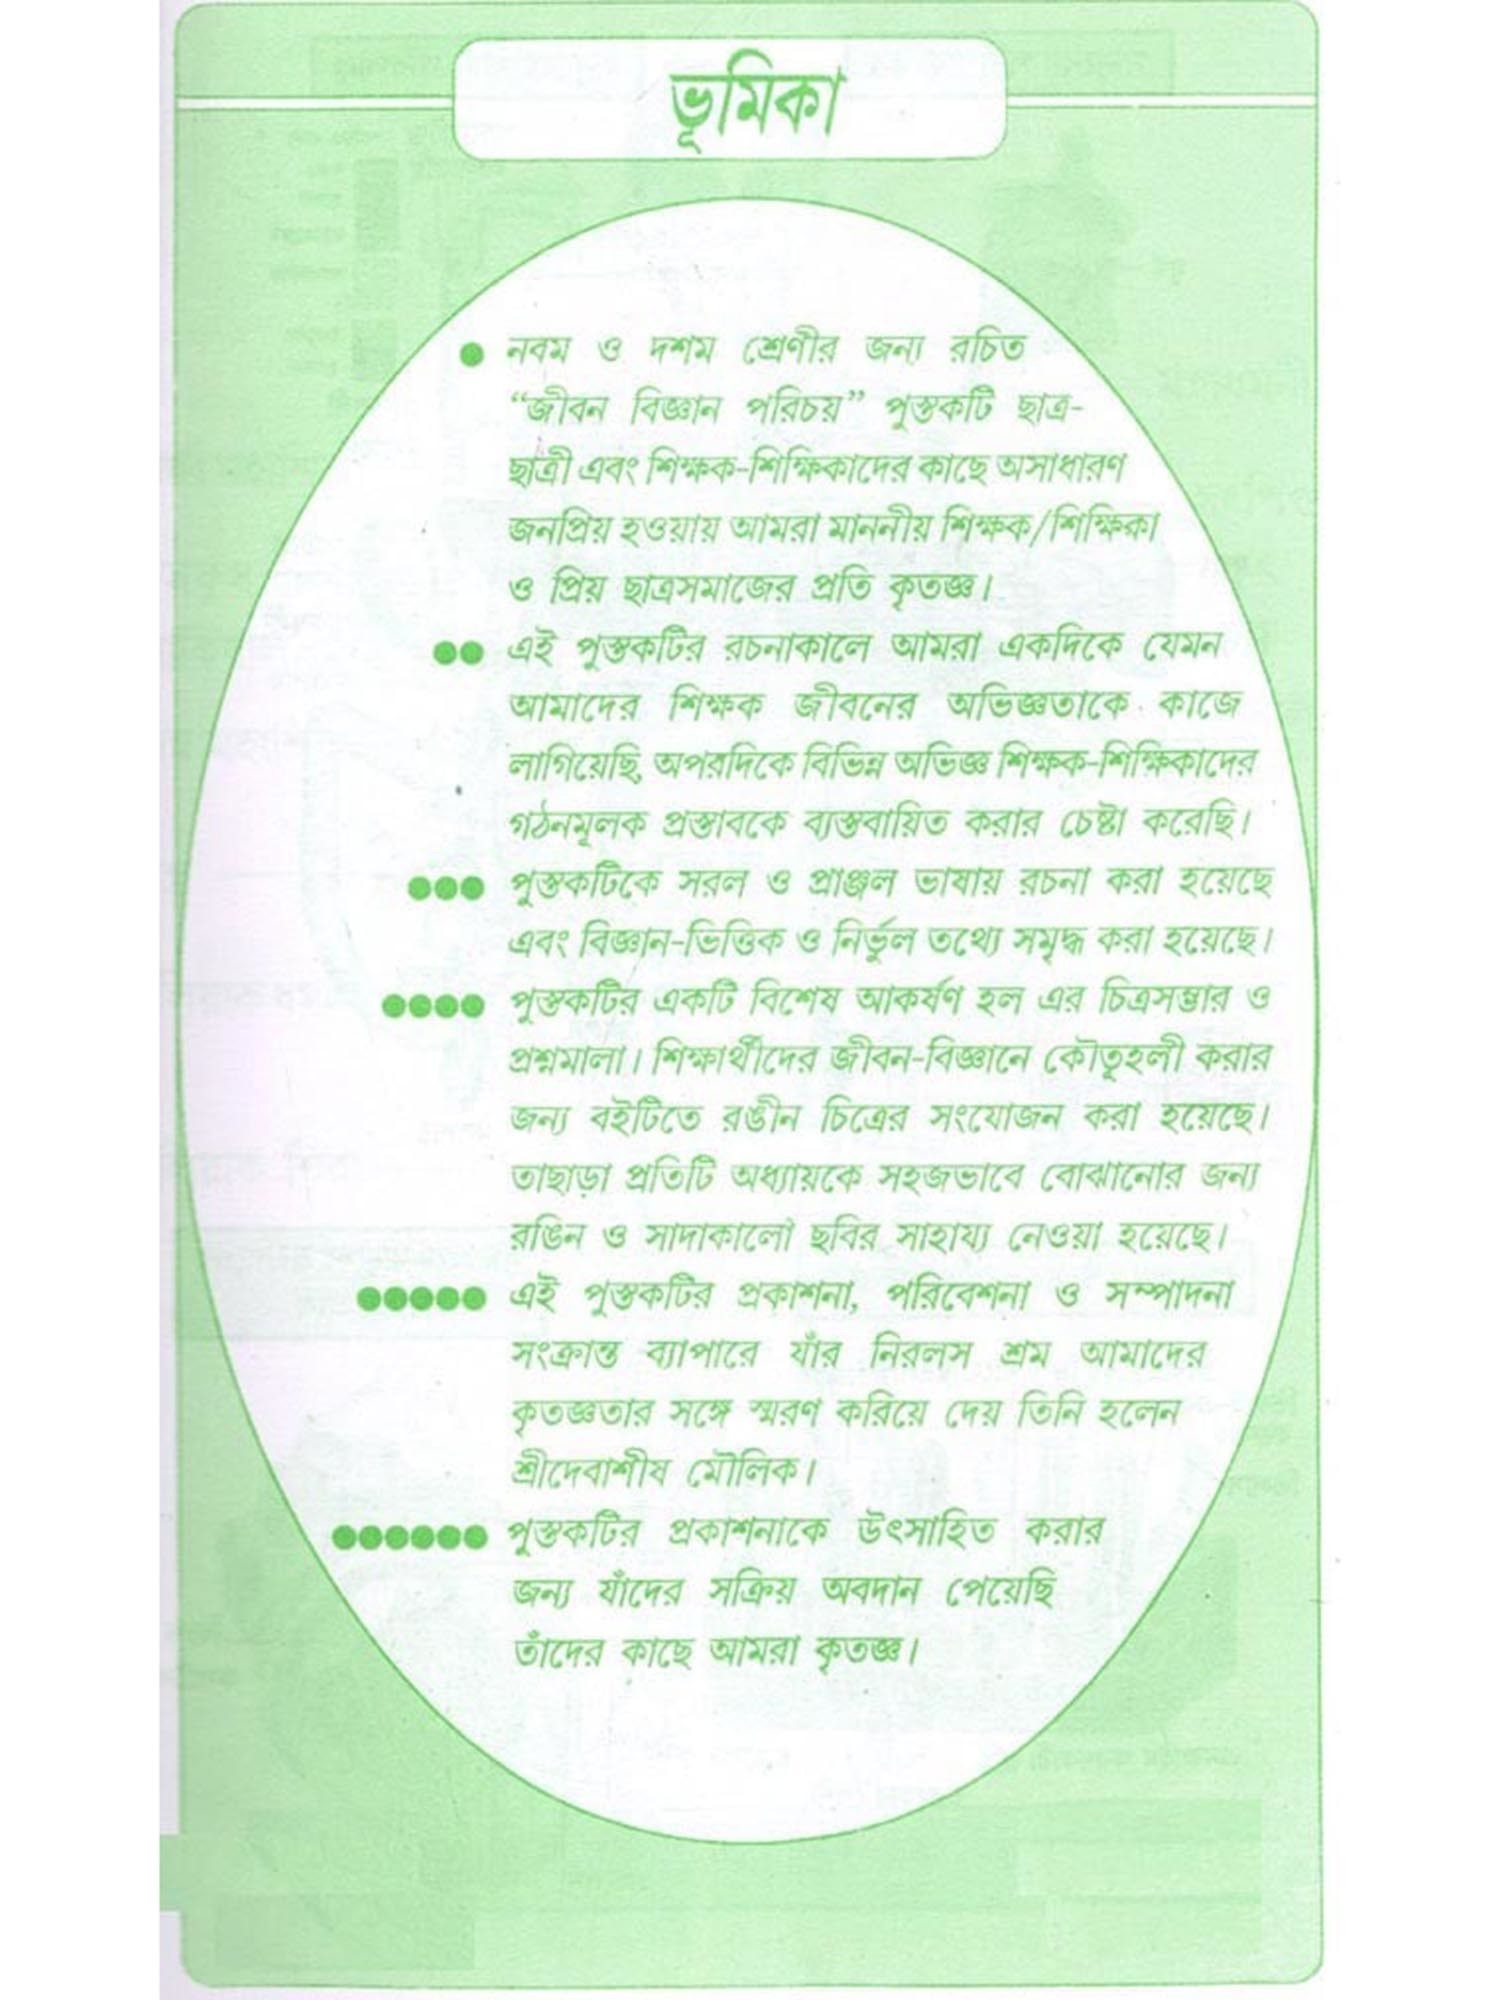 ভূমিকা
● নবম ও দশম শ্রেণীর জন্য রচিত
“জীবন বিজ্ঞান পরিচয়” পুস্তকটি ছাত্র-
ছাত্রী এবং শিক্ষক-শিক্ষিকাদের কাছে অসাধারণ
জনপ্রিয় হওয়ায় আমরা মাননীয় শিক্ষক/শিক্ষিকা
ও প্রিয় ছাত্রসমাজের প্রতি কৃতজ্ঞ।
●● এই পুস্তকটির রচনাকালে আমরা একদিকে যেমন
আমাদের শিক্ষক জীবনের অভিজ্ঞতাকে কাজে
লাগিয়েছি, অপরদিকে বিভিন্ন অভিজ্ঞ শিক্ষক-শিক্ষিকাদের
গঠনমূলক প্রস্তাবকে ব্যস্তবায়িত করার চেষ্টা করেছি।
●●● পুস্তকটিকে সরল ও প্রাঞ্জল ভাষায় রচনা করা হয়েছে
এবং বিজ্ঞান-ভিত্তিক ও নির্ভুল তথ্যে সমৃদ্ধ করা হয়েছে।
●●●● পুস্তকটির একটি বিশেষ আকর্ষণ হল এর চিত্রসম্ভার ও
প্রশ্নমালা। শিক্ষার্থীদের জীবন-বিজ্ঞানে কৌতূহলী করার
জন্য বইটিতে রঙীন চিত্রের সংযোজন করা হয়েছে।
তাছাড়া প্রতিটি অধ্যায়কে সহজভাবে বোঝানোর জন্য
রঙিন ও সাদাকালো ছবির সাহায্য নেওয়া হয়েছে।
●●●●● এই পুস্তকটির প্রকাশনা, পরিবেশনা ও সম্পাদনা
সংক্রান্ত ব্যাপারে যাঁর নিরলস শ্রম আমাদের
কৃতজ্ঞতার সঙ্গে স্মরণ করিয়ে দেয় তিনি হলেন
শ্রীদেবাশীষ মৌলিক।
●●●●●● পুস্তকটির প্রকাশনাকে উৎসাহিত করার
জন্য যাঁদের সক্রিয় অবদান পেয়েছি
তাঁদের কাছে আমরা কৃতজ্ঞ।